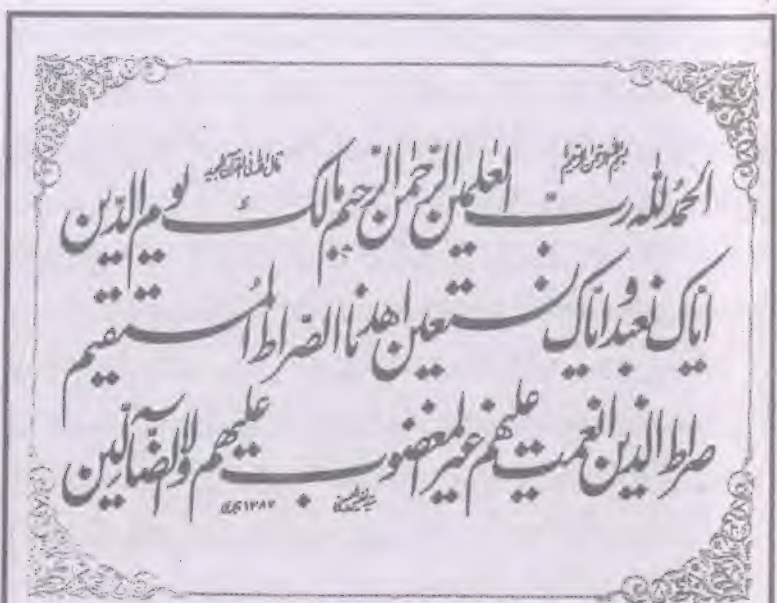 بسم الله الرحمن الرحیم
الحمد لله رب العلمین الرحمن الرحیم مالک یوم الدین
ایاک نعبد و ایاک نستعین اهدنا الصراط المستقیم
صراط الذین انعمت علیهم غیر المغضوب علیهم ولا الضآلین
۱۳۸۲